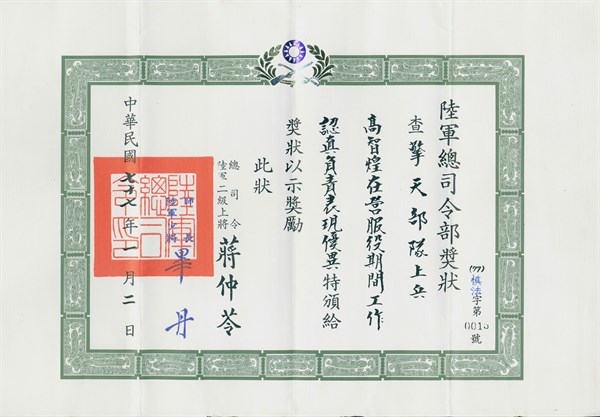 陸軍總司令部獎狀
(77)法字第0015號
查擎天部隊上兵
高智煌在營服役期間工作
認真負責表現優異特頒給
獎狀以示獎勵
此狀
總司令
陸軍二級上將
蔣仲苓
師長
陸軍少將
畢丹
陸軍總司令印
中華民國七十七年一月二日